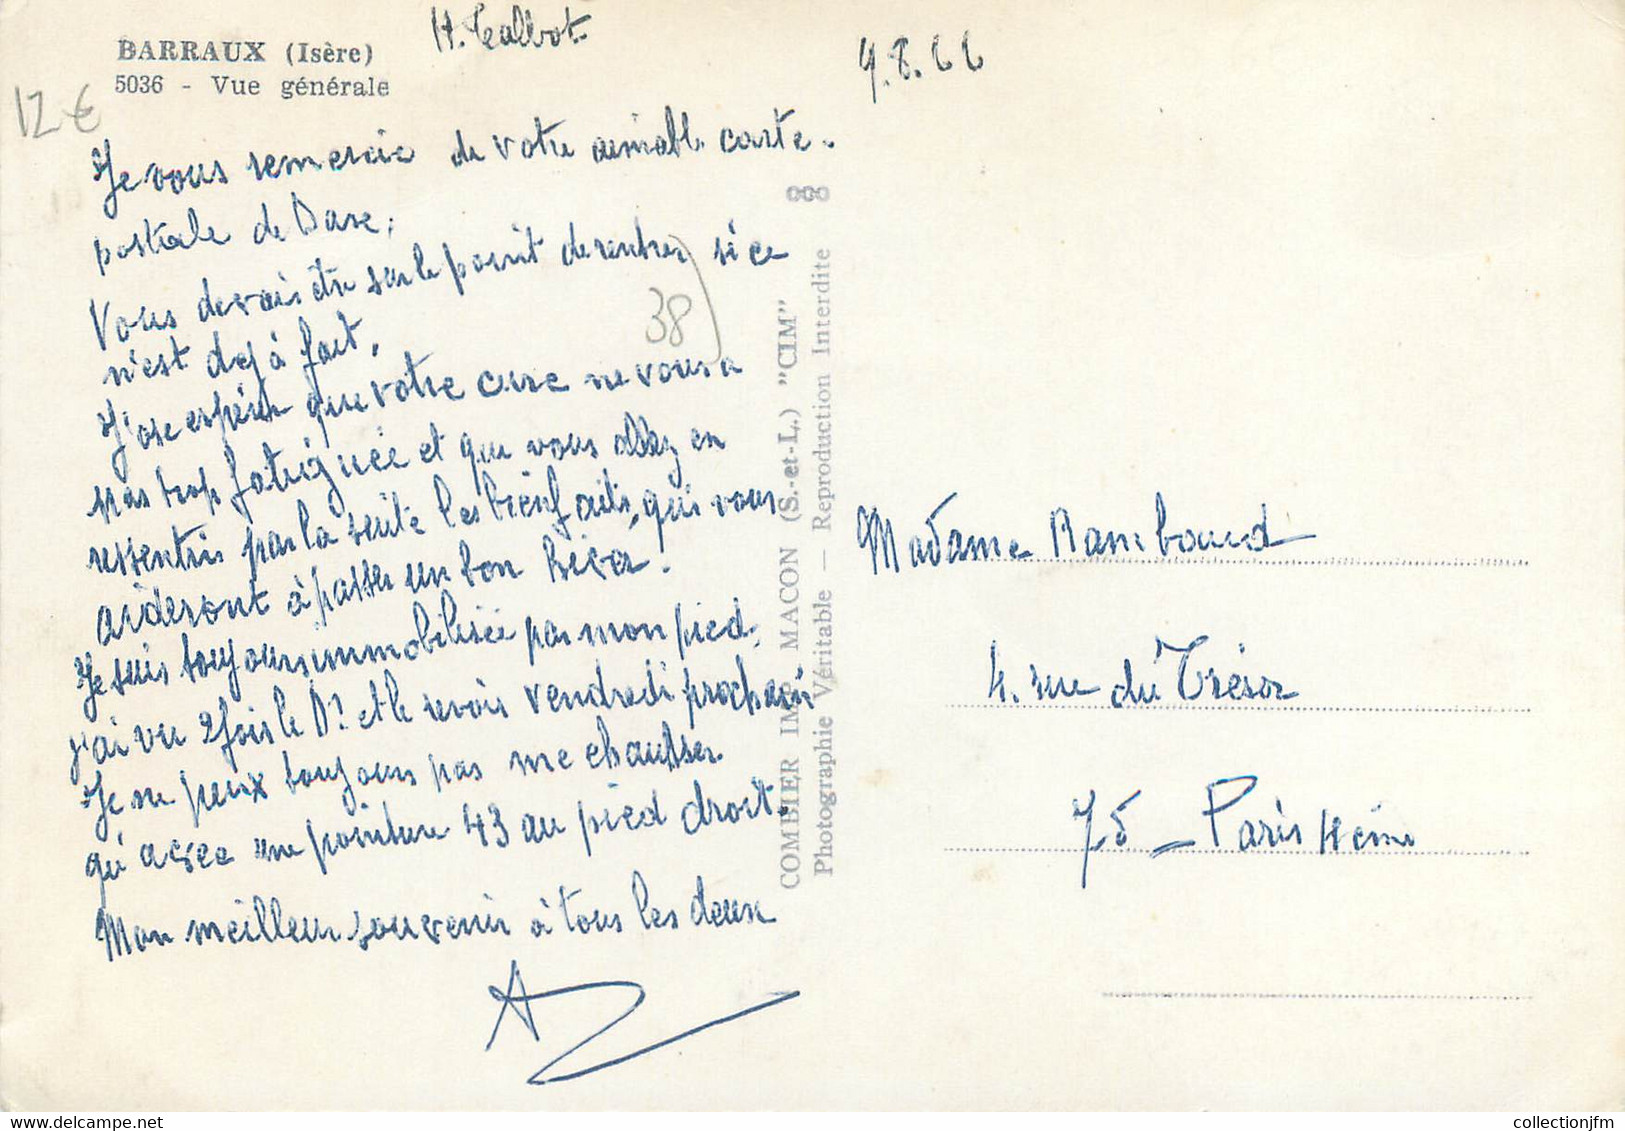 BARRAUX (Isère)
5036 - Vue générale
H. Talbot
9.8.66
12 €
Je vous remercie de votre aimable carte
postale de Dax.
Vous devais être sur le point de rentrer, si ce
n'est déjà fait.
38
J'ose espérer que votre cure ne vous a
pas trop fatiguée et que vous allez en
ressentir par la suite les bienfaits, qui vous
aideront à passer un bon hiver.
Je suis toujours immobilisée par mon pied,
j'ai vu 2 fois le Dr et le revois vendredi prochain
Je ne peux toujours pas me chausser
qu'avec une pointure 43 au pied droit.
Mon meilleur souvenir à tous les deux
COMBIER IMP. MACON (S.-et-L.) "CIM"
Photographie Véritable — Reproduction Interdite
Madame Rambaud
4. rue du Trésor
75 - Paris 4ème
collectionjfm